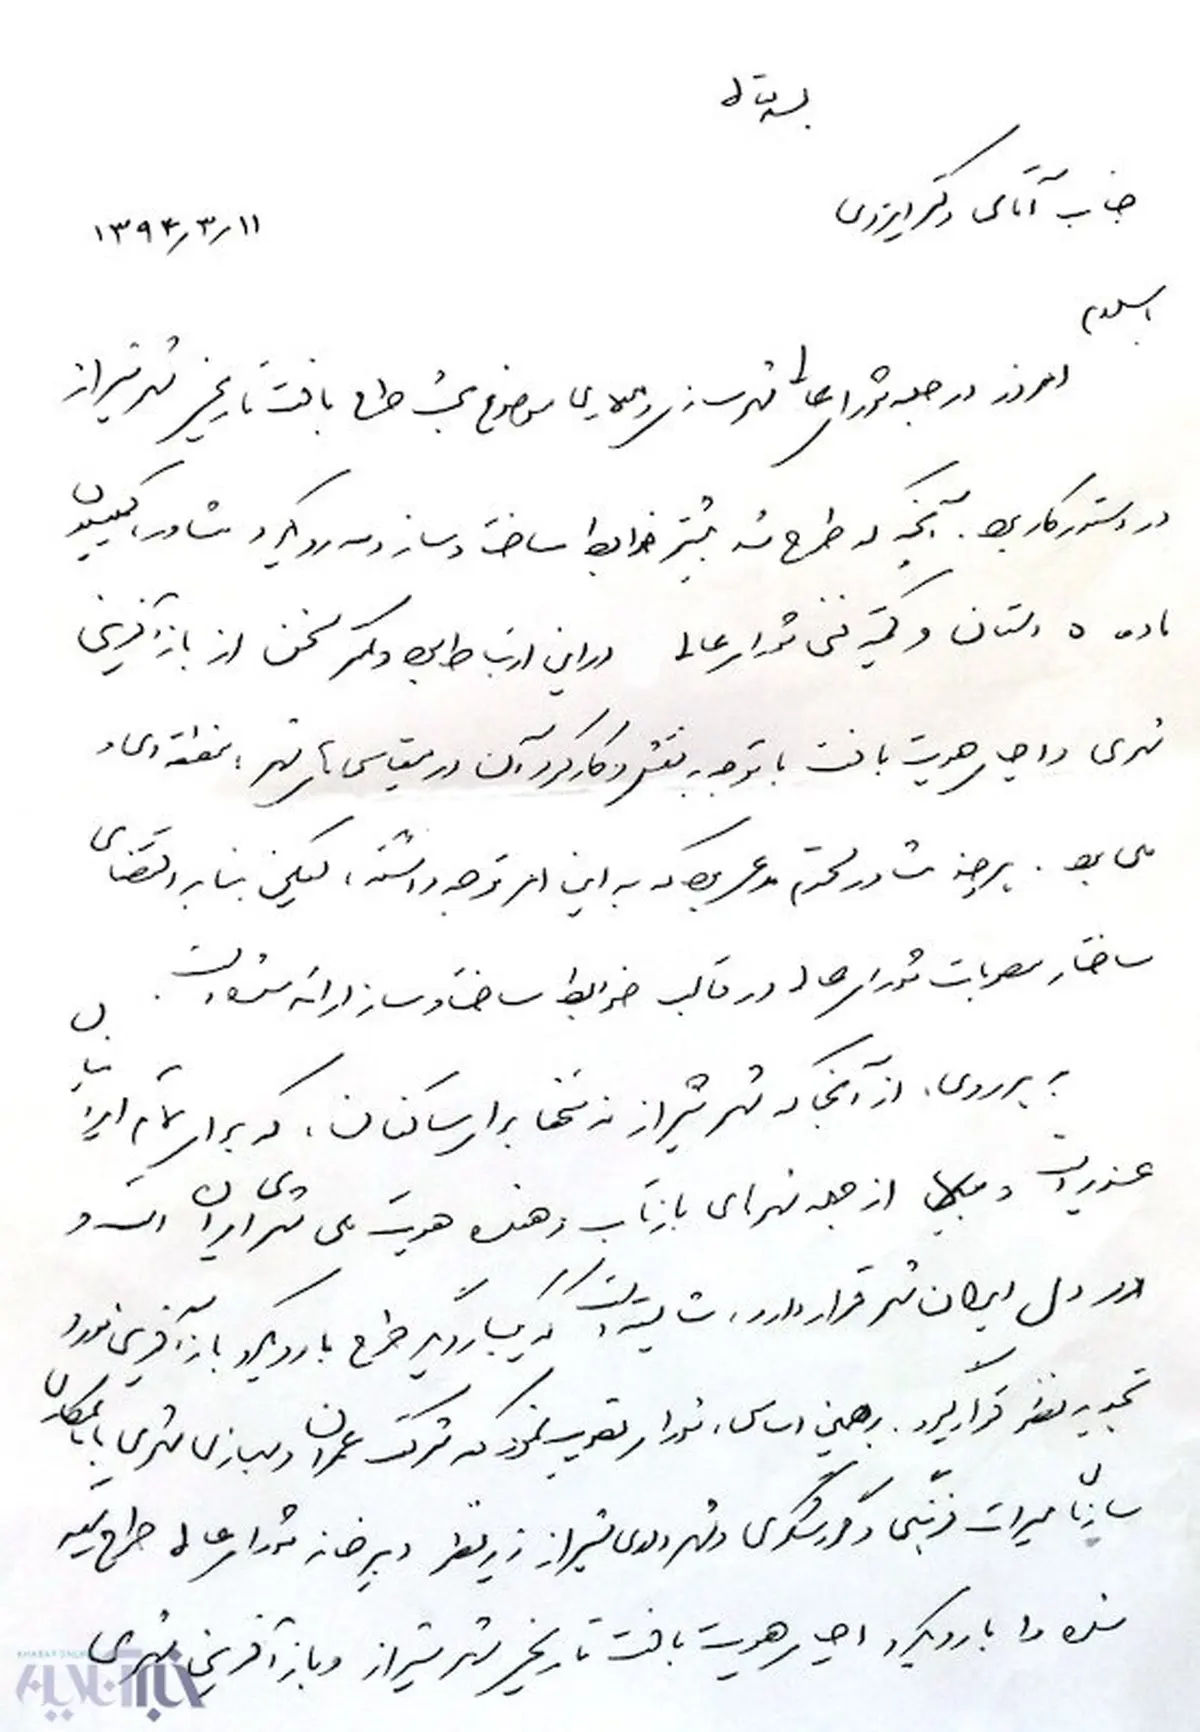 بسمه تعالی
جناب آقای دکتر ایزدی
۱۳۹۴/۳/۱۱
با سلام
امروز در جلسه شورای عالی شهرسازی و معماری موضوع بحث طرح بافت تاریخی شهر شیراز
در دستور کار بود. آنچه که طرح شد بیشتر ضوابط ساخت و ساز و سه رویکرد مشاور، کمیسیون
ماده ۵ استان و کمیته فنی شورای عالی در این ارتباط بود و کمتر سخن از باز آفرینی
شهری و احیای هویت بافت با توجه به نقش و کارکرد آن در مقیاس های شهر، منطقه ای و
ملی بود. هرچند مشاور محترم مدعی بود که به این امر توجه داشته، لیکن بنا به اقتضای
ساختار مصوبات شورای عالی در قالب ضوابط ساخت و ساز ارائه شده است.
به هر روی، از آنجا که شهر شیراز نه تنها برای ساکنان، که برای تمام ایرانیان
عزیز است و از جمله شهرهای بازتاب دهنده هویت ملی شهرهای ایران است و
در دل ایران شهر قرار دارد، شایسته است که یکبار دیگر طرح با رویکرد باز آفرینی مورد
تجدید نظر قرار گیرد. بر همین اساس، شورا تصویب نمود که شرکت عمران و بهسازی شهری با همکاری
سازمان میراث فرهنگی و گردشگری و شهرداری شیراز زیر نظر دبیرخانه شورای عالی طرح تهیه
شده را با رویکرد احیای هویت بافت تاریخی شهر شیراز و باز آفرینی شهری
KHABAR ONLINE
خبرآنلاین